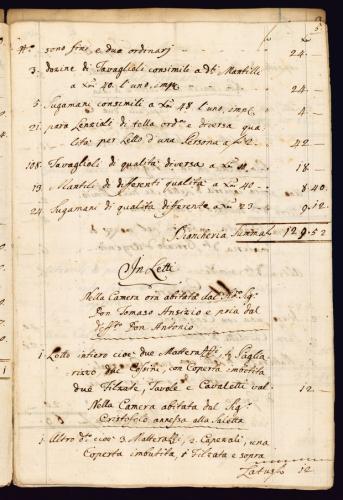 sono fini e due ordinarj 24.
3. dozine di Tavaglioli consimili a dti Mantili
a Xni 40. l'uno, imp.e 24.
5. Sugamani consimili a Xni 48 l'uno, imp.e 4
21. para Lenzioli di tella ord.a e diversa qua
lità per Letto d'una Persona a 2 42
108. Tavaglioli di qualità diversa a Xni 18
13. Mantili di differenti qualità a Xni 40 8.40
24. Sugamani di qualità differente a Xni 23 9.12
Biancheria Summa 129.52
In Letti
Nella Camera ora abitata dal Sig.
Don Tomaso Ansizio e poscia dal
Don Antonio
1. Letto intiero cioè due Matterazzi, Paglia
rizzo due Cossini, con Coperta imbotita
due Filzate, Tavole e Cavaletti val 12.
Nella Camera abitata dal Sig.
Cristofolo annessa alla Saletta
1. Altro d.o cioè 3. Matterazzi, 2. Capezali, una
Coperta imbotita, 1 Filzata e sopra
Latus 12